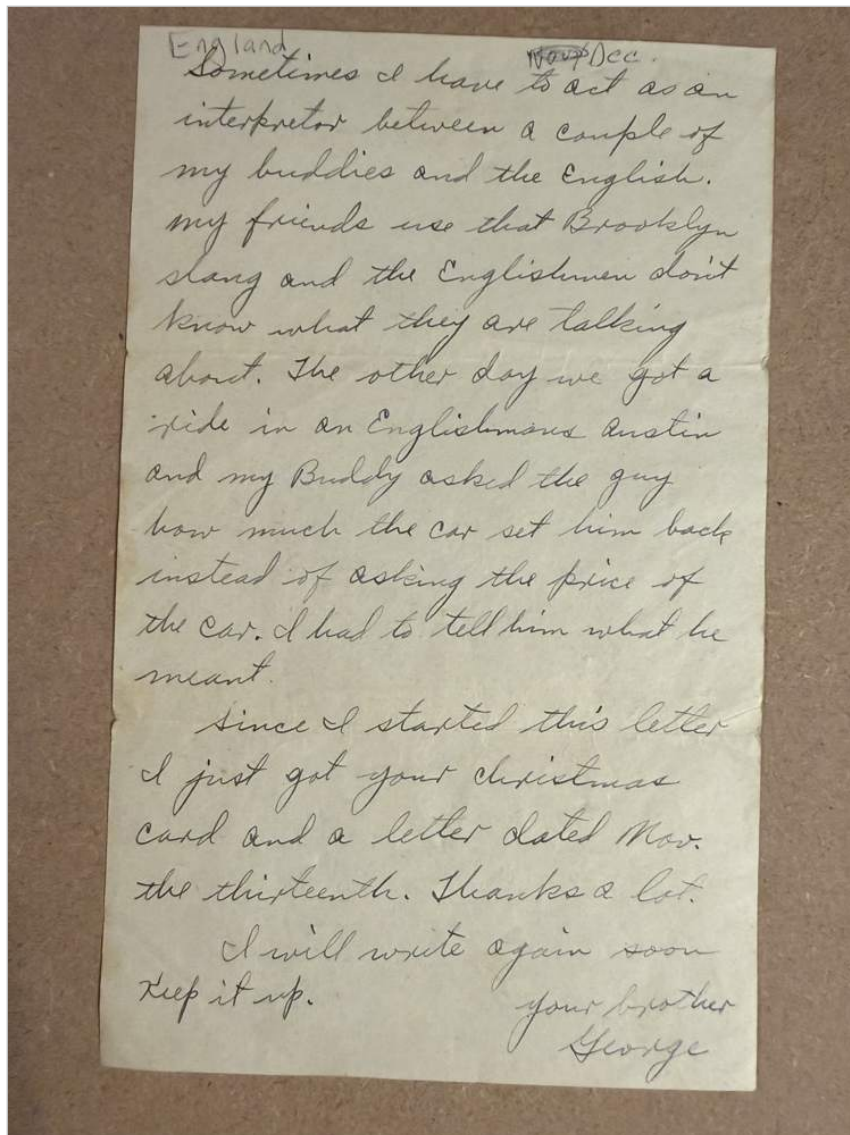 England Dec.
Sometimes I have to act as an
interpretor between a couple of
my buddies and the English.
my friends use that Brooklyn
slang and the Englishmen don't
know what they are talking
about. The other day we got a
ride in an Englishmans Austin
and my Buddy asked the guy
how much the car set him back
instead of asking the price of
the car. I had to tell him what he
meant.
since I started this letter
I just got your christmas
card and a letter dated Nov.
the thirteenth. Thanks a lot.
I will write again soon
Keep it up.
your brother
George